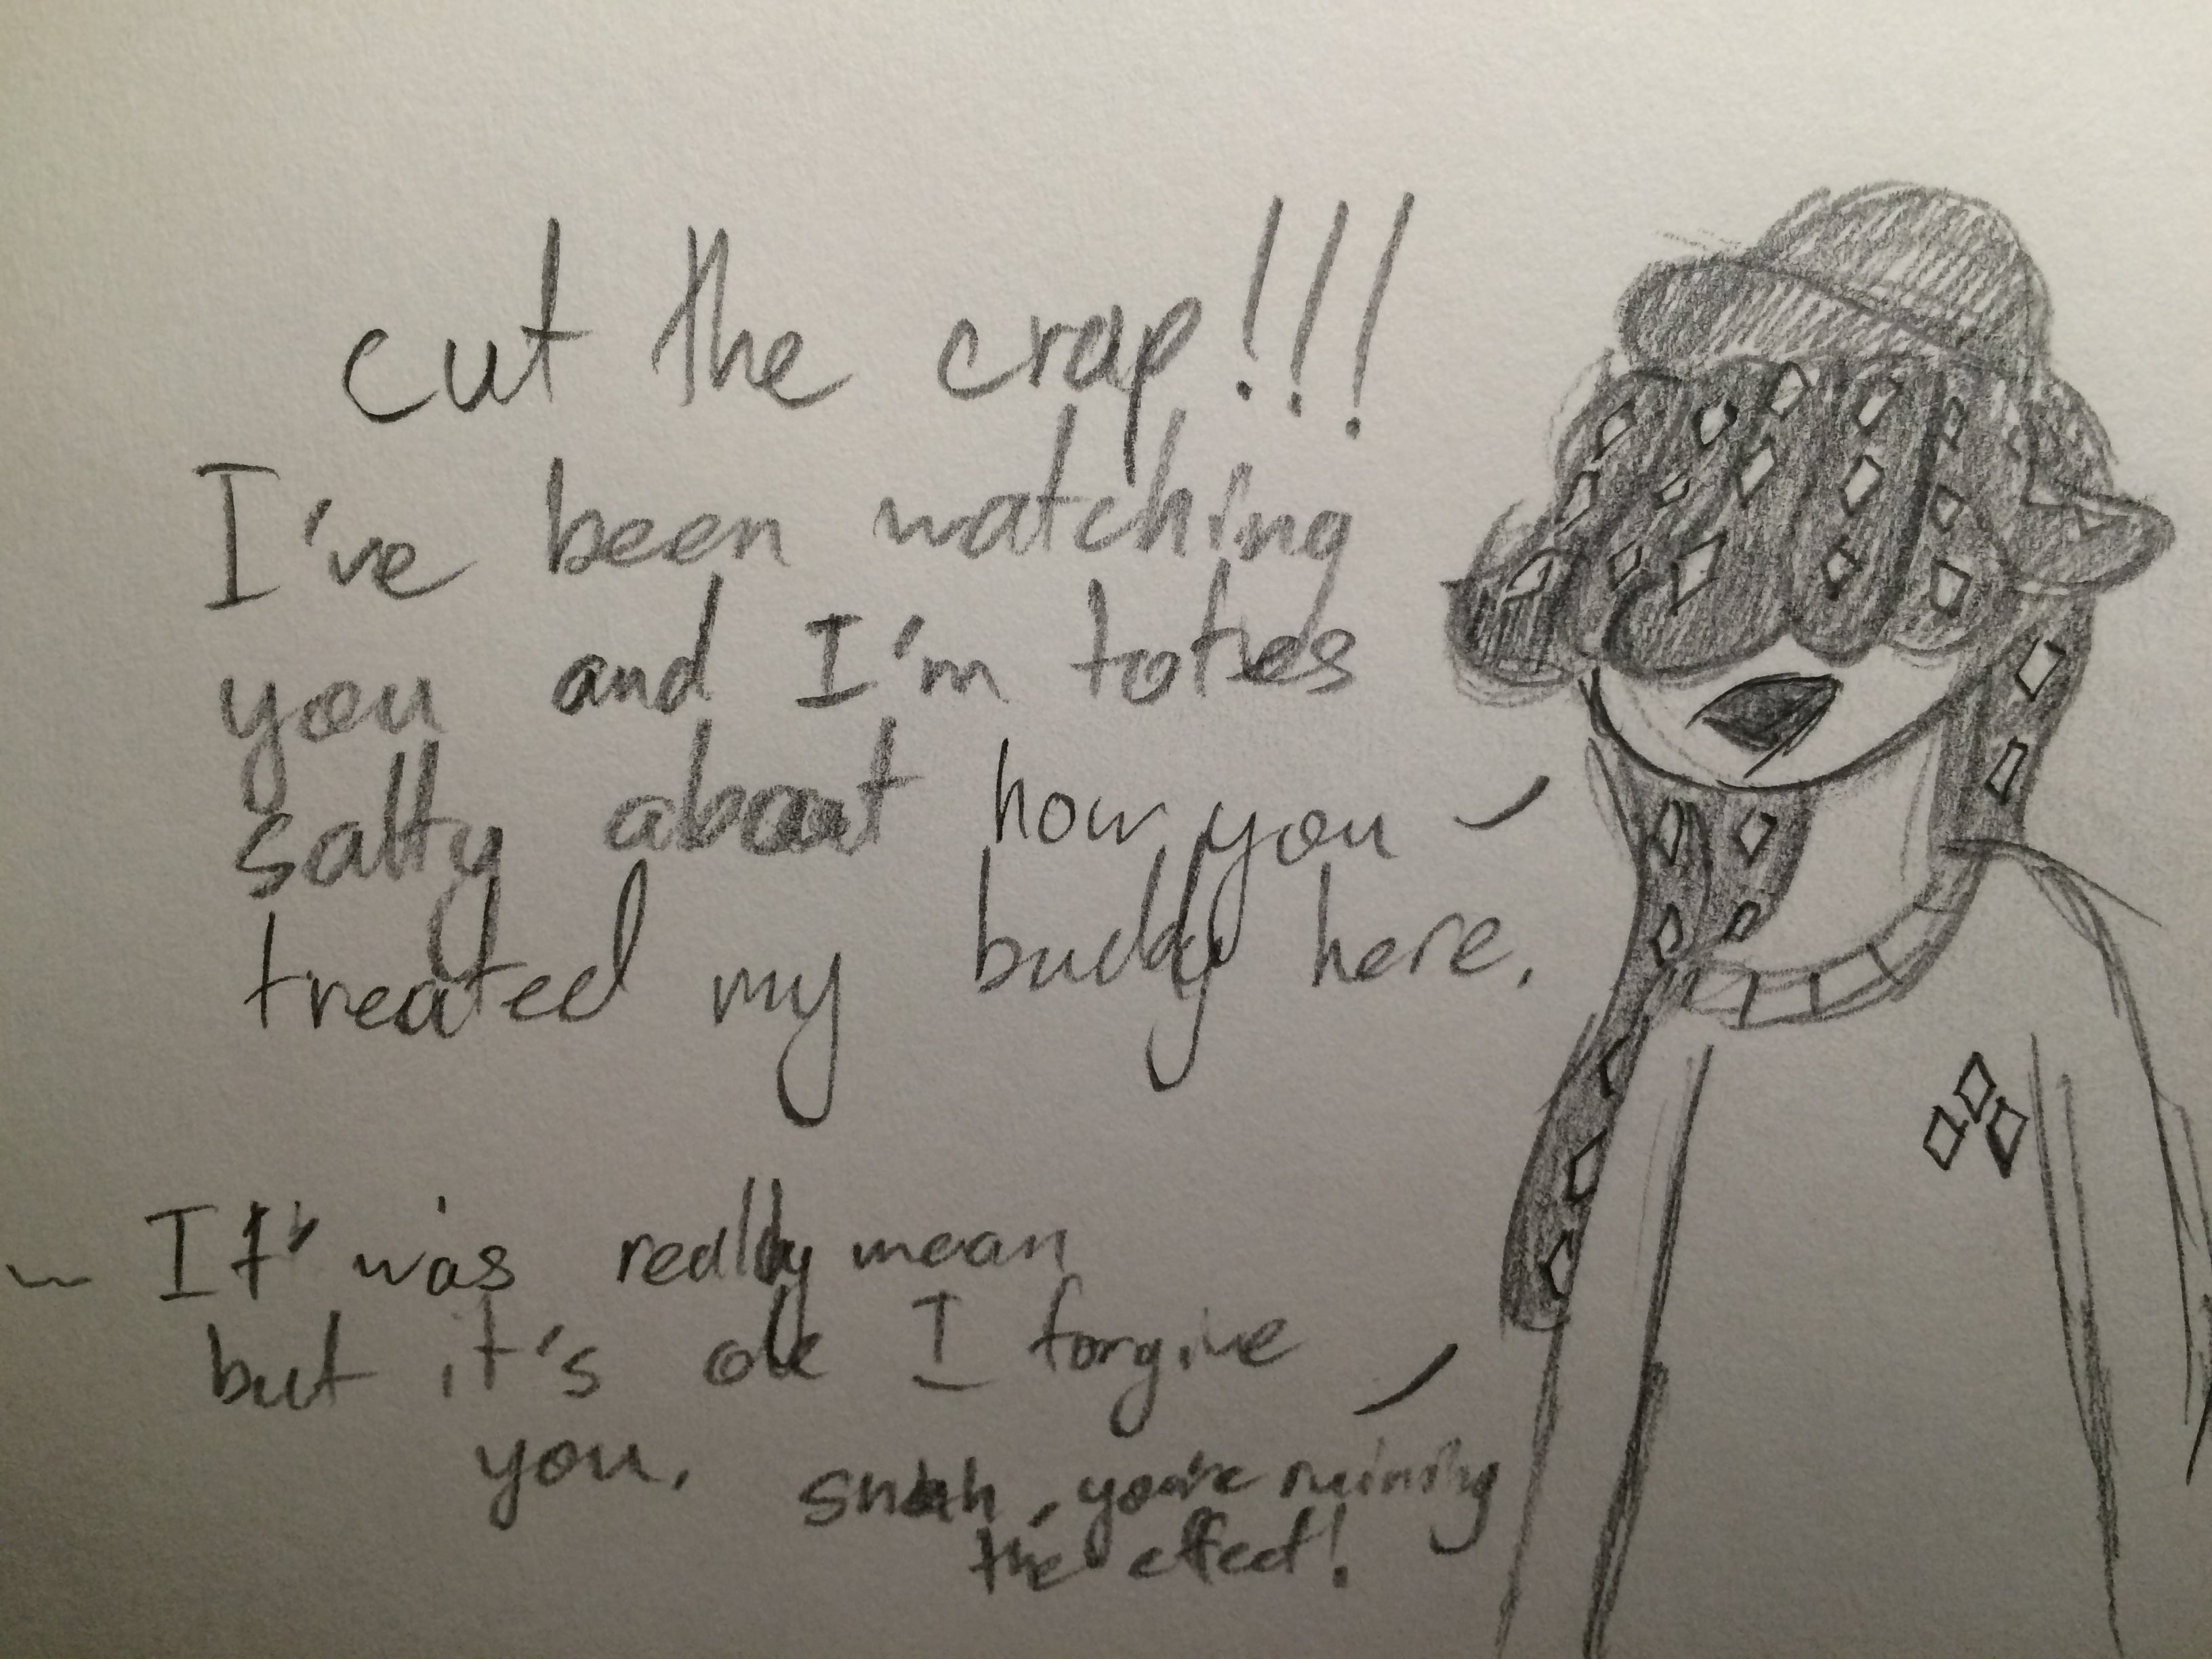 cut the crap!!!
I've been watching
you and I'm toties
salty about how you
treated my buddy here.
It was really mean
but it's ok I forgive
you.
shhh, you're ruining
the effect!